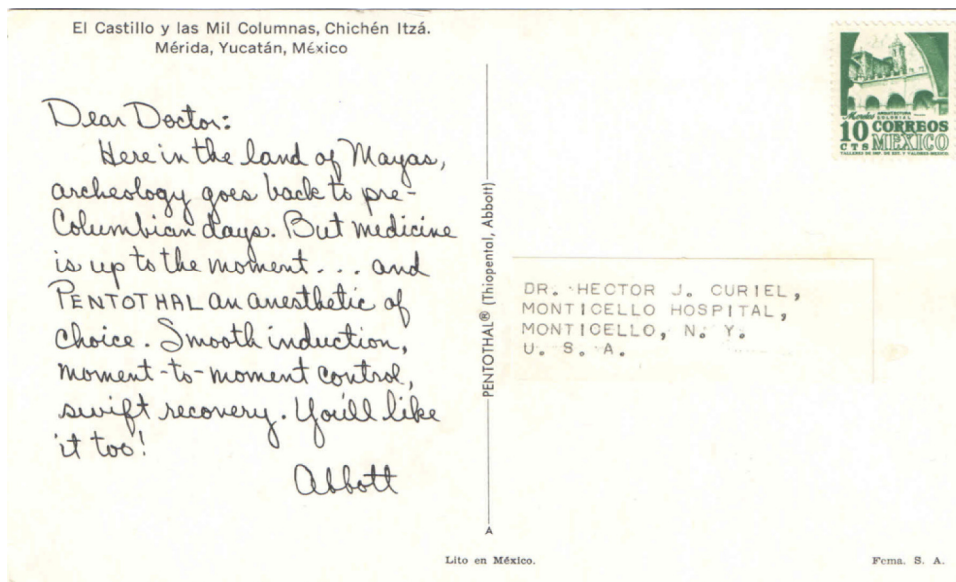 El Castillo y las Mil Columnas, Chichén Itzá.
Mérida, Yucatán, México
Dear Doctor:
Here in the land of Mayas,
archeology goes back to pre-
Columbian days. But medicine
is up to the moment... and
PENTOTHAL an anesthetic of
choice. Smooth induction,
moment-to-moment control,
swift recovery. You'll like
it too!
Abbott
PENTOTHAL® (Thiopental, Abbott)
A
ARQUITECTURA
COLONIAL
10 CORREOS
CTS MEXICO
DR. HECTOR J. CURIEL,
MONTICELLO HOSPITAL,
MONTICELLO, N. Y.
U. S. A.
Lito en México.
Fema. S. A.